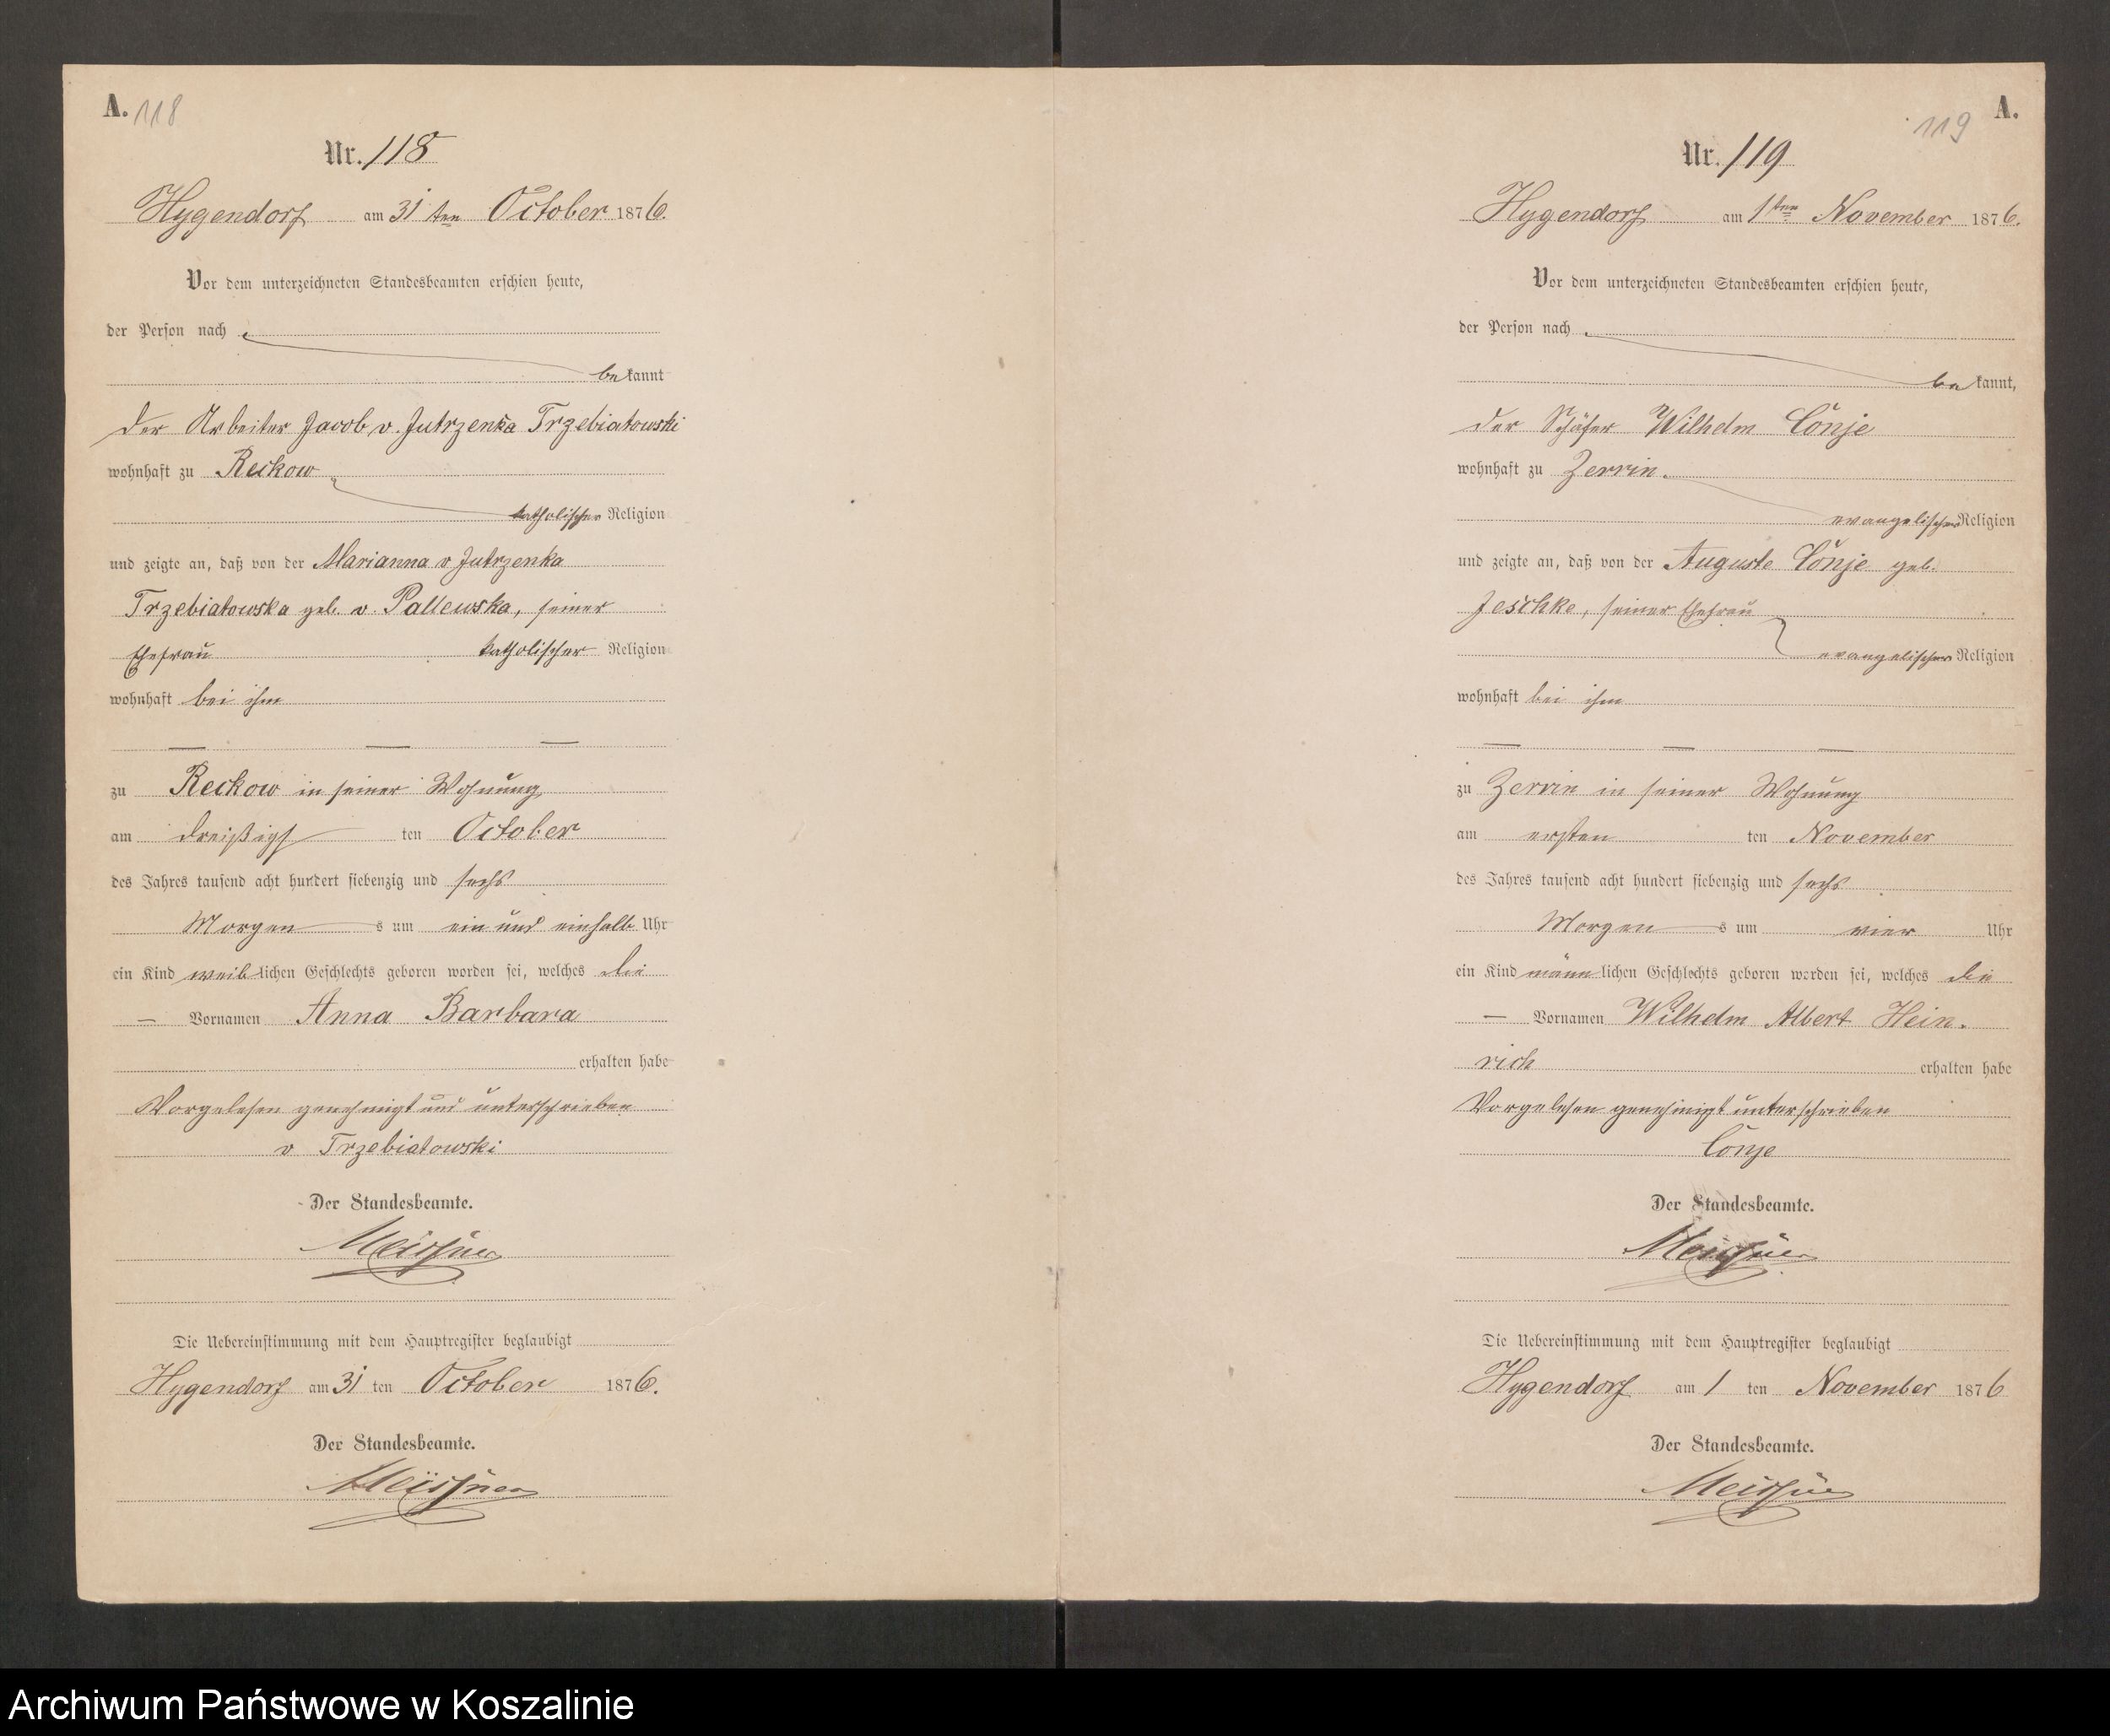 A. 118
Nr. 118
Hygendorf am 31 ten October 1876.
Vor dem unterzeichneten Standesbeamten erschien heute,
der Person nach
bekannt
der Arbeiter Jacob v. Jutrzenka Trzebiatowski
wohnhaft zu Reckow
katholischer Religion
und zeigte an, daß von der Marianna v Jutrzenka
Trzebiatowska geb. v. Pallewska, seiner
Ehefrau katholischer Religion
wohnhaft bei ihm
zu Reckow in seiner Wohnung
am dreißigs ten October
des Jahres tausend acht hundert siebenzig und sechs
Morgens um ein und einhalb Uhr
ein Kind weiblichen Geschlechts geboren worden sei, welches die
— Vornamen Anna Barbara
erhalten habe
Vorgelesen genehmigt und unterschrieben
v Trzebiatowski
Der Standesbeamte.
Meissner
Die Uebereinstimmung mit dem Hauptregister beglaubigt
Hygendorf am 31 ten October 1876.
Der Standesbeamte.
Meissner
119 A.
Nr. 119
Hygendorf am 1ten November 1876.
Vor dem unterzeichneten Standesbeamten erschien heute,
der Person nach
bekannt,
der Schäfer Wilhelm Cönje
wohnhaft zu Zerrin.
evangelischer Religion
und zeigte an, daß von der Auguste Cönje geb.
Jeschke, seiner Ehefrau
evangelischer Religion
wohnhaft bei ihm
zu Zerrin in seiner Wohnung
am ersten ten November
des Jahres tausend acht hundert siebenzig und sechs
Morgens um vier Uhr
ein Kind männlichen Geschlechts geboren worden sei, welches die
— Vornamen Wilhelm Albert Hein-
rich erhalten habe
Vorgelesen genehmigt unterschrieben
Cönje
Der Standesbeamte.
Meissner
Die Uebereinstimmung mit dem Hauptregister beglaubigt
Hygendorf am 1 ten November 1876
Der Standesbeamte.
Meissner
Archiwum Państwowe w Koszalinie